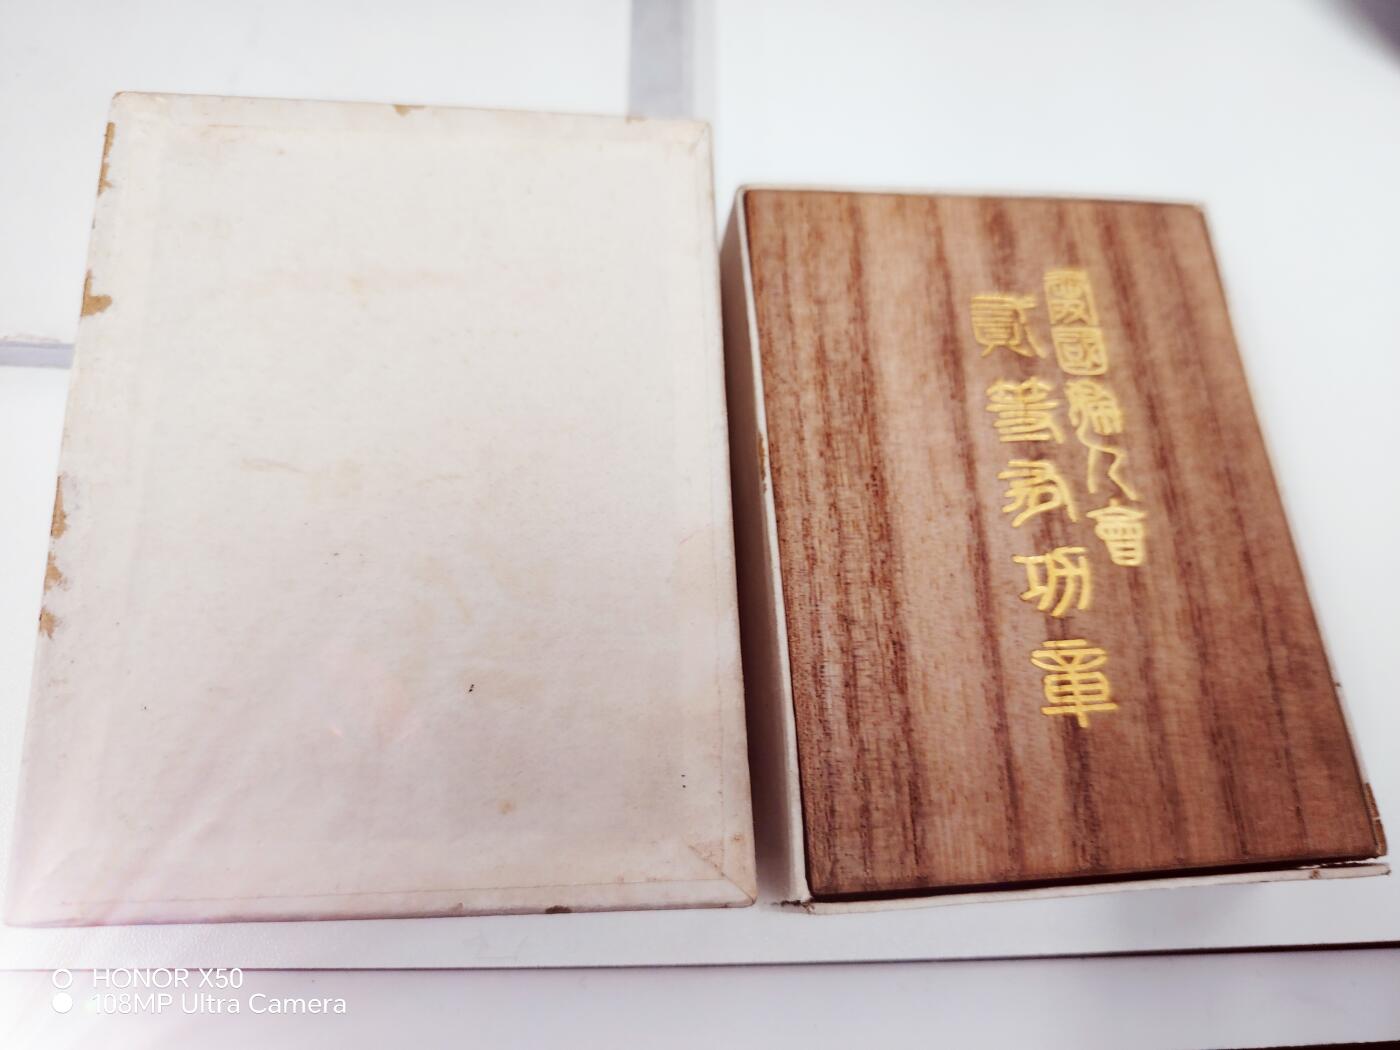 愛國婦人會
貳等有功章
HONOR X50
108MP Ultra Camera